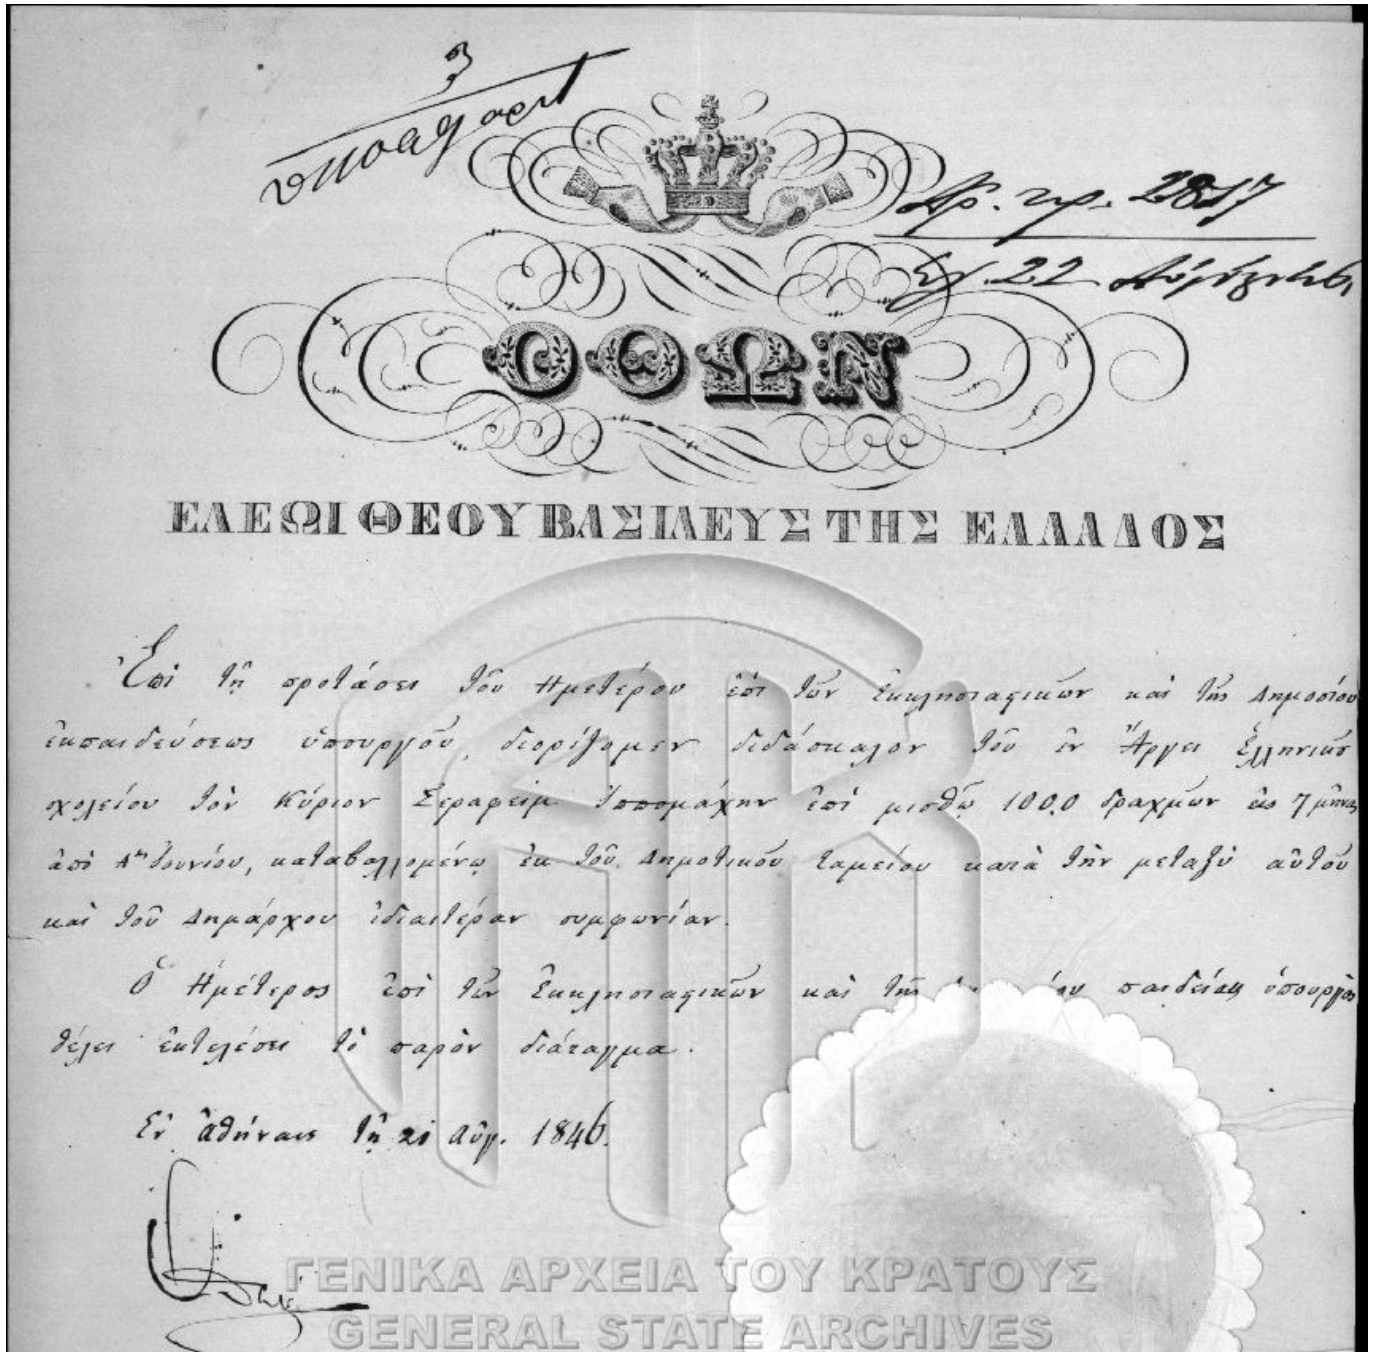 3
Ἀρ. πρ. 2817
22 Αὐγ 46
ΟΘΩΝ
ΕΛΕΩΙ ΘΕΟΥ ΒΑΣΙΛΕΥΣ ΤΗΣ ΕΛΛΑΔΟΣ
Ἐπὶ τῇ προτάσει τοῦ Ἡμετέρου ἐπὶ τῶν Ἐκκλησιαστικῶν καὶ τῆς Δημοσίου
ἐκπαιδεύσεως ὑπουργοῦ, διορίζομεν διδάσκαλον τοῦ ἐν Ἄργει Ἑλληνικοῦ
σχολείου τὸν Κύριον Σεραφεὶμ Ἱππομάχην ἐπὶ μισθῷ 100,0 δραχμῶν ὡς 7 μῆνας
ἀπὸ Αης Ἰουνίου, καταβαλλομένῳ ἐκ τοῦ Δημοτικοῦ ταμείου κατὰ τὴν μεταξὺ αὐτοῦ
καὶ τοῦ Δημάρχου ἰδιαιτέραν συμφωνίαν.
Ὁ Ἡμέτερος ἐπὶ τῶν Ἐκκλησιαστικῶν καὶ τῆς παιδείας ὑπουργὸς
θέλει ἐκτελέσει τὸ παρὸν διάταγμα.
Ἐν Ἀθήναις τῇ 21 Αὐγ. 1846.
ΓΕΝΙΚΑ ΑΡΧΕΙΑ ΤΟΥ ΚΡΑΤΟΥΣ
GENERAL STATE ARCHIVES